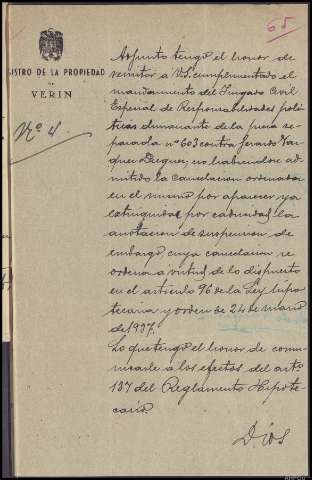 65
REGISTRO DE LA PROPIEDAD
DE
VERIN
Nº 4.
Adjunto tengo el honor de
remitir a V.S. cumplimentado el
mandamiento del Juzgado Civil
Especial de Responsabilidades polí-
ticas dimanante de la pieza se-
parada nº 603 contra Gerardo Vaz-
quez Dieguez, no habiendose ad-
mitido la cancelacion ordenada
en el mismo por aparecer ya
extinguida por caducidad la
anotacion de suspension de
embargo, cuya cancelacion se
ordena a virtud de lo dispuesto
en el articulo 96 de la Ley hipo-
tecaria y orden de 24 de marzo
de 1937.
Lo que tengo el honor de comu-
nicarle a los efectos del artº
137 del Reglamento Hipote-
cario.
Dios